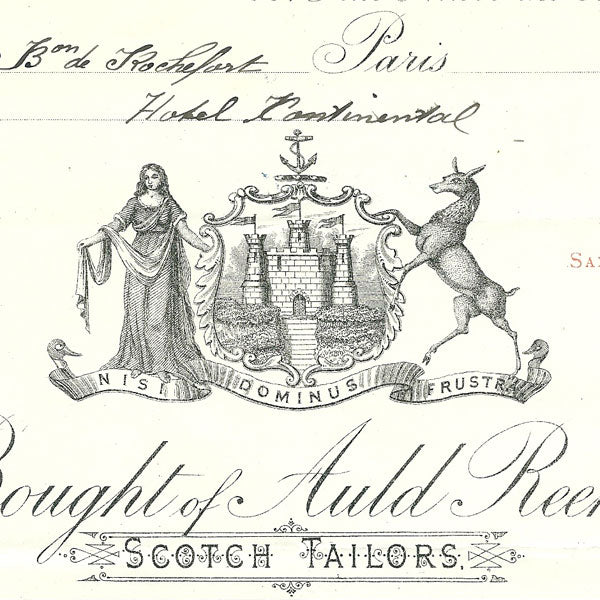 Paris
Bon de Rochefort
Hotel Continental
NISI DOMINUS FRUSTRA
Bought of Auld Reek
SCOTCH TAILORS.